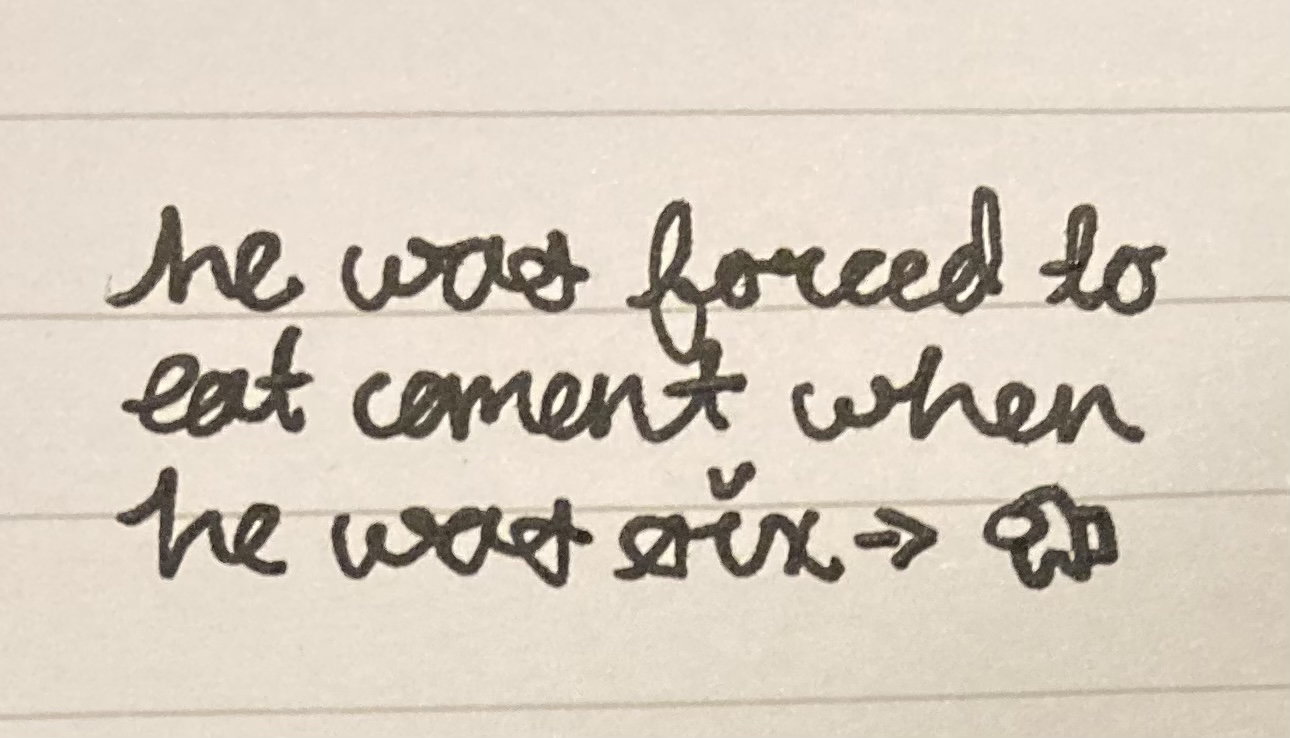 he was forced to
eat cement when
he was six →